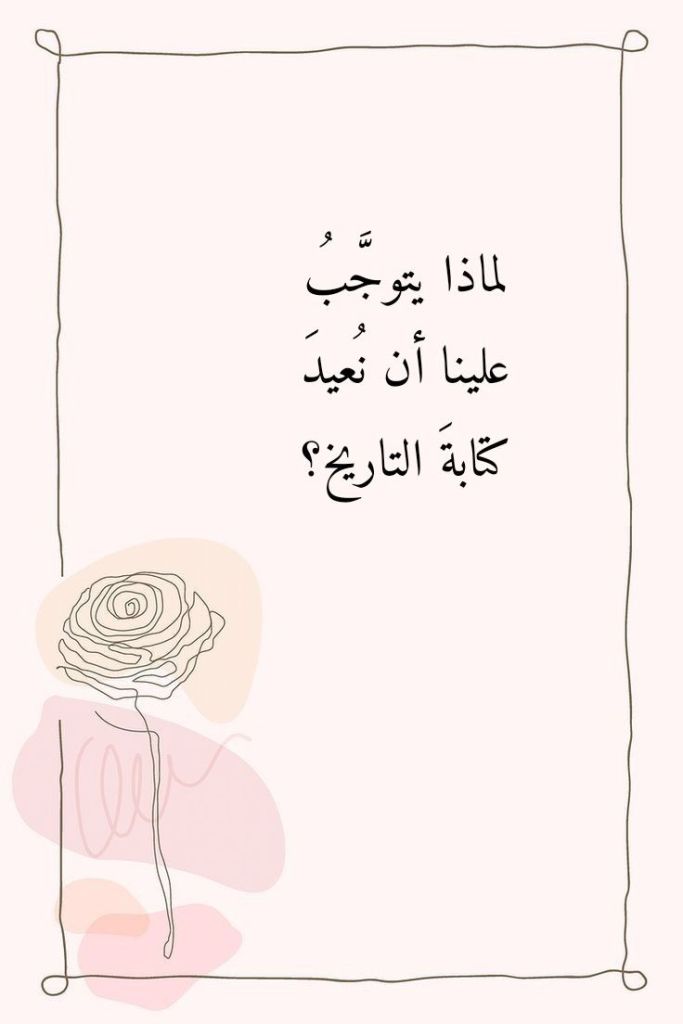 لماذا يتوجَّبُ
علينا أن نُعيدَ
كتابةَ التاريخ؟